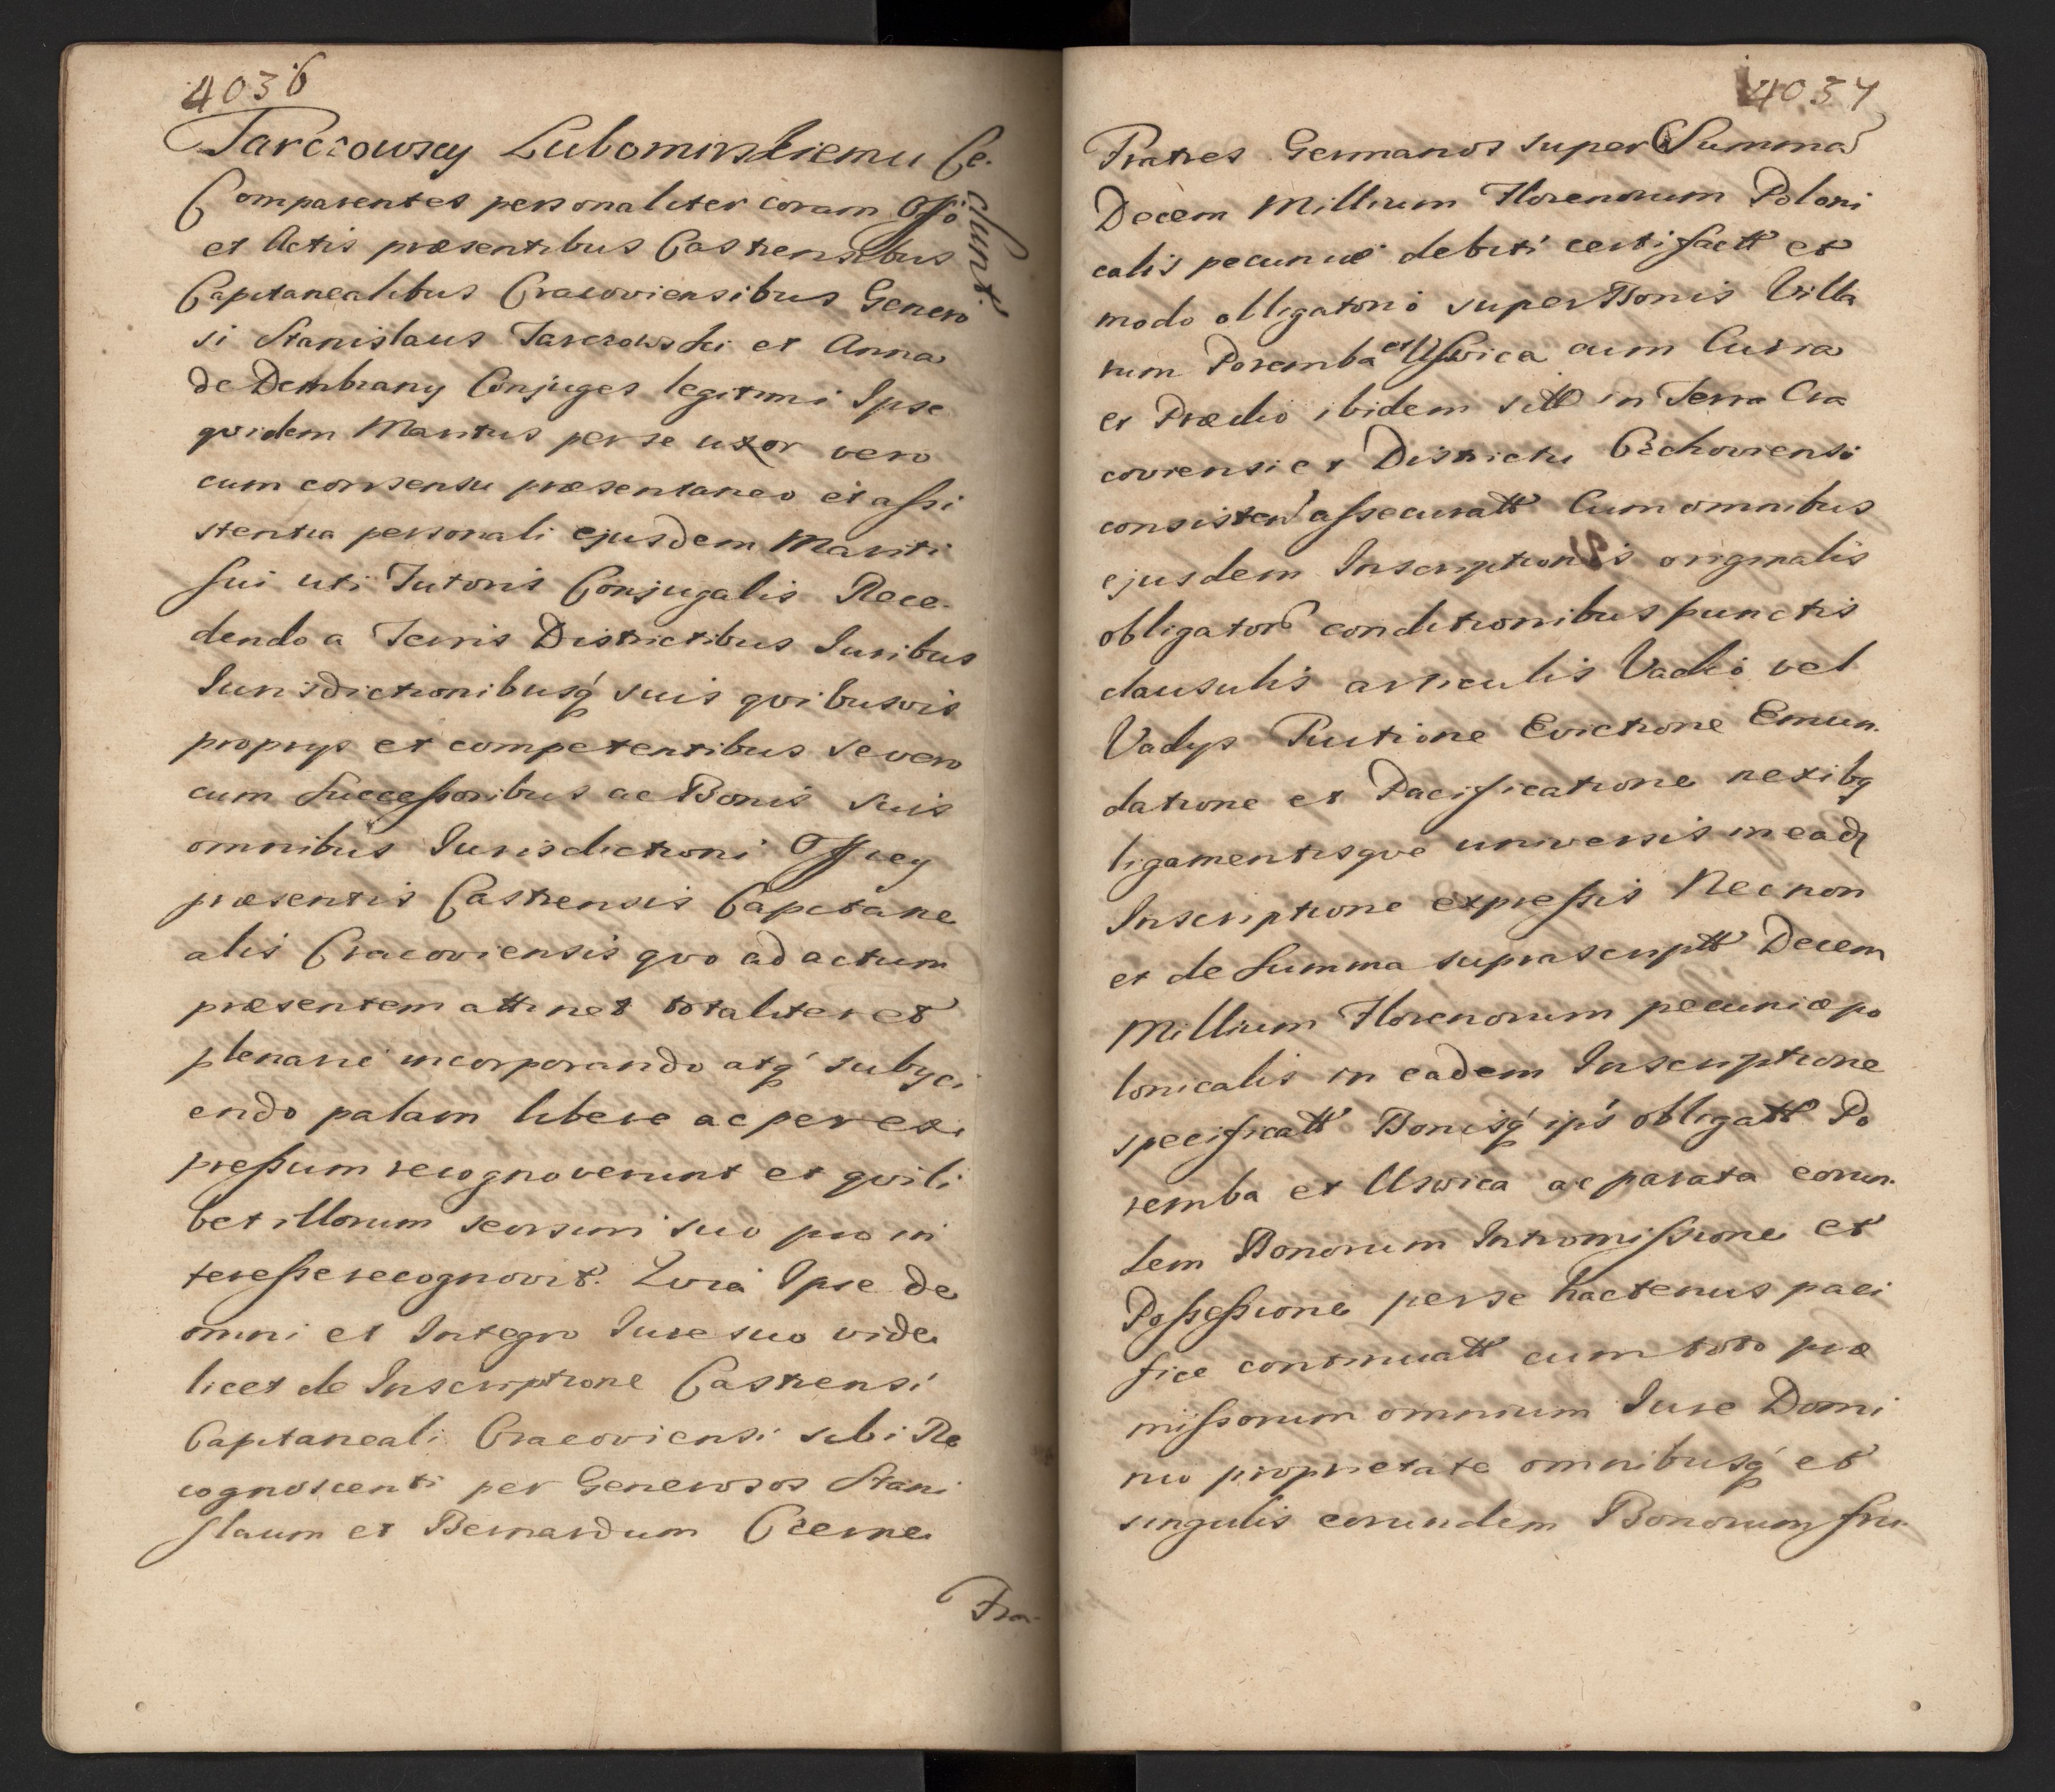 4036
Tarczowscy Lubomirskiemu Ce-
dunt.
Comparentes personaliter coram Offo
et Actis præsentibus Castrensibus
Capitanealibus Cracoviensibus Genero
si Stanislaus Tarczowski et Anna
de Dembiany Conjuges legitimi Ipse
qvidem Maritus per se uxor vero
cum consensu præsentaneo et assi
stentia personali ejusdem Mariti
sui uti Tutoris Conjugalis Rece-
dendo a Terris Districtibus Iuribus
Iurisdictionibusq́ suis qvibusvis
proprys et competentibus se vero
cum Successoribus ac Bonis suis
omnibus Iurisdictioni Officy
præsentis Castrensis Capitane
alis Cracoviensis qvo ad actum
præsentem attinet totaliter et
plenarie incorporando atq́ subyci
endo palam libere ac per ex
pressum recognoverunt et qvili
bet illorum seorsim suo pro in
teresse recognovit. Qvia Ipse de
omni et Integro Iure suo vide
licet de Inscriptione Castrensi
Capitaneali Cracoviensi sibi Re
cognoscenti per Generosos Stani
slaum et Bernardum Czerne
Fra-
4037
Fratres Germanos super Summa
Decem Millium Florenorum Poloni
calis pecuniæ debiti certi factt et
modo obligatorio super Bonis Villa
rum Poremba et Uswica cum Curia
et Prædio ibidem sitt in Terra Cra
coviensi et Districtu Czchoviensi
consisten assecuratt Cum omnibus
ejusdem Inscriptionis originalis
obligator conditionibus punctis
clausulis articulis Vadio vel
Vadys Tuitione Evictione Emun-
datione et Pacificatione nexibq
ligamentisqve universis in ead
Inscriptione expressis Nec non
et de Summa suprascriptt Decem
Millium Florenorum pecuniæ po
lonicalis in eadem Inscriptione
specificatt Bonisq́ ips obligatt Po
remba et Uswica ac parata eorun-
dem Bonorum Intromissione et
Possessione per se hactenus paci
fice continuatt cum toto præ
missorum omnium Iure Domi
nio proprietate omnibusq́ et
singulis eorundem Bonorum fru-